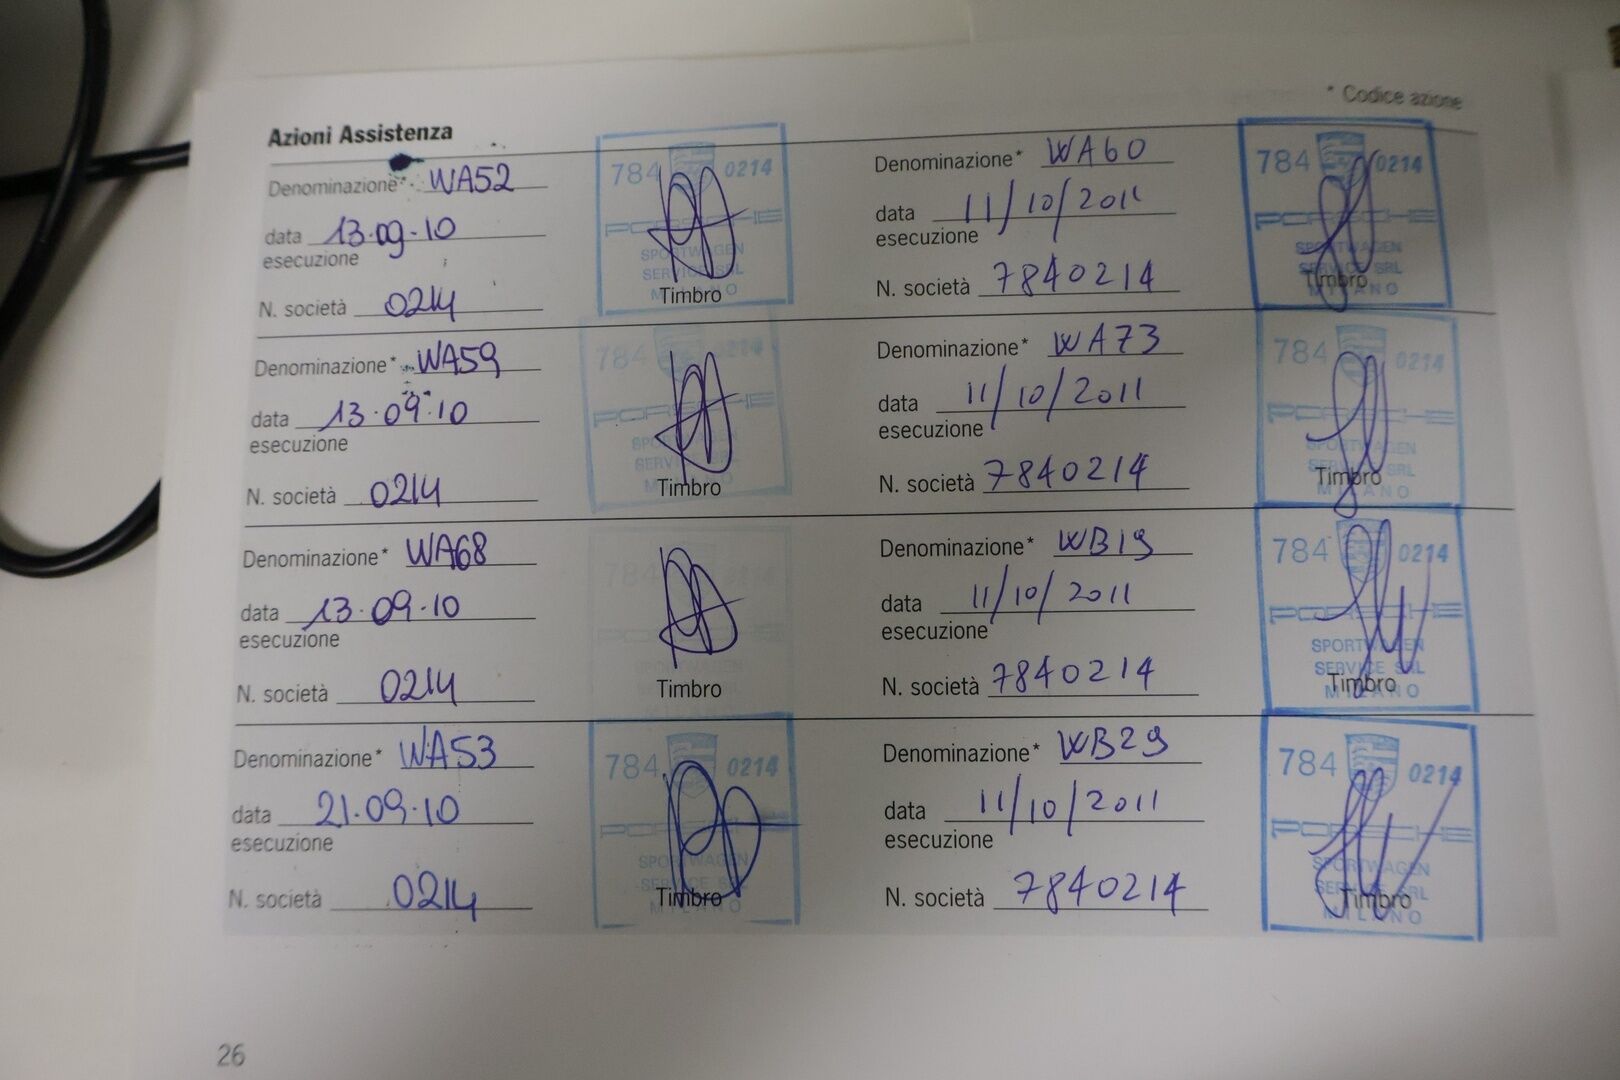 * Codice azione
Azioni Assistenza
Denominazione* WA52
data 13.09.10
esecuzione
N. società 0214
784 0214
PORSCHE
SPORTWAGEN
SERVICE SRL
MILANO
Timbro
Denominazione* WA59
data 13.09.10
esecuzione
N. società 0214
784 0214
PORSCHE
SERV
Timbro
Denominazione* WA68
data 13.09.10
esecuzione
N. società 0214
784 0214
Timbro
Denominazione* WA53
data 21.09.10
esecuzione
N. società 0214
784 0214
PORSCHE
SPORTWAGEN
SERVICE SRL
MILANO
Timbro
Denominazione* WA60
data 11/10/2011
esecuzione
N. società 7840214
784 0214
PORSCHE
SPORTWAGEN
SERVICE SRL
MILANO
Timbro
Denominazione* WA73
data 11/10/2011
esecuzione
N. società 7840214
784 0214
PORSCHE
SPORTWAGEN
SERVICE SRL
MILANO
Timbro
Denominazione* WB19
data 11/10/2011
esecuzione
N. società 7840214
784 0214
PORSCHE
SPORTWAGEN
SERVICE SRL
MILANO
Timbro
Denominazione* WB29
data 11/10/2011
esecuzione
N. società 7840214
784 0214
PORSCHE
SPORTWAGEN
SERVICE SRL
MILANO
Timbro
26